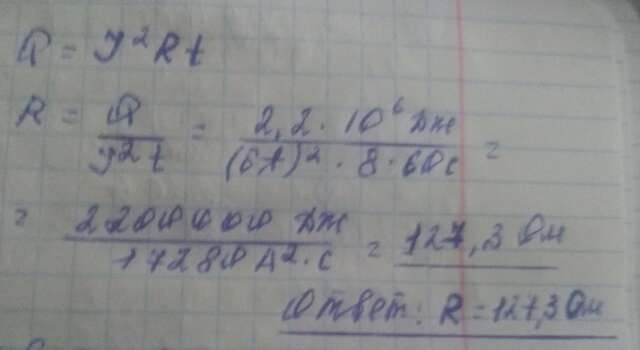 Q = I²Rt
R = Q / I²t = 2,2 · 10⁶ Дж / (6A)² · 8 · 60с =
= 2200000 Дж / 17280 A² · с = 127,3 Ом
Ответ: R = 127,3 Ом